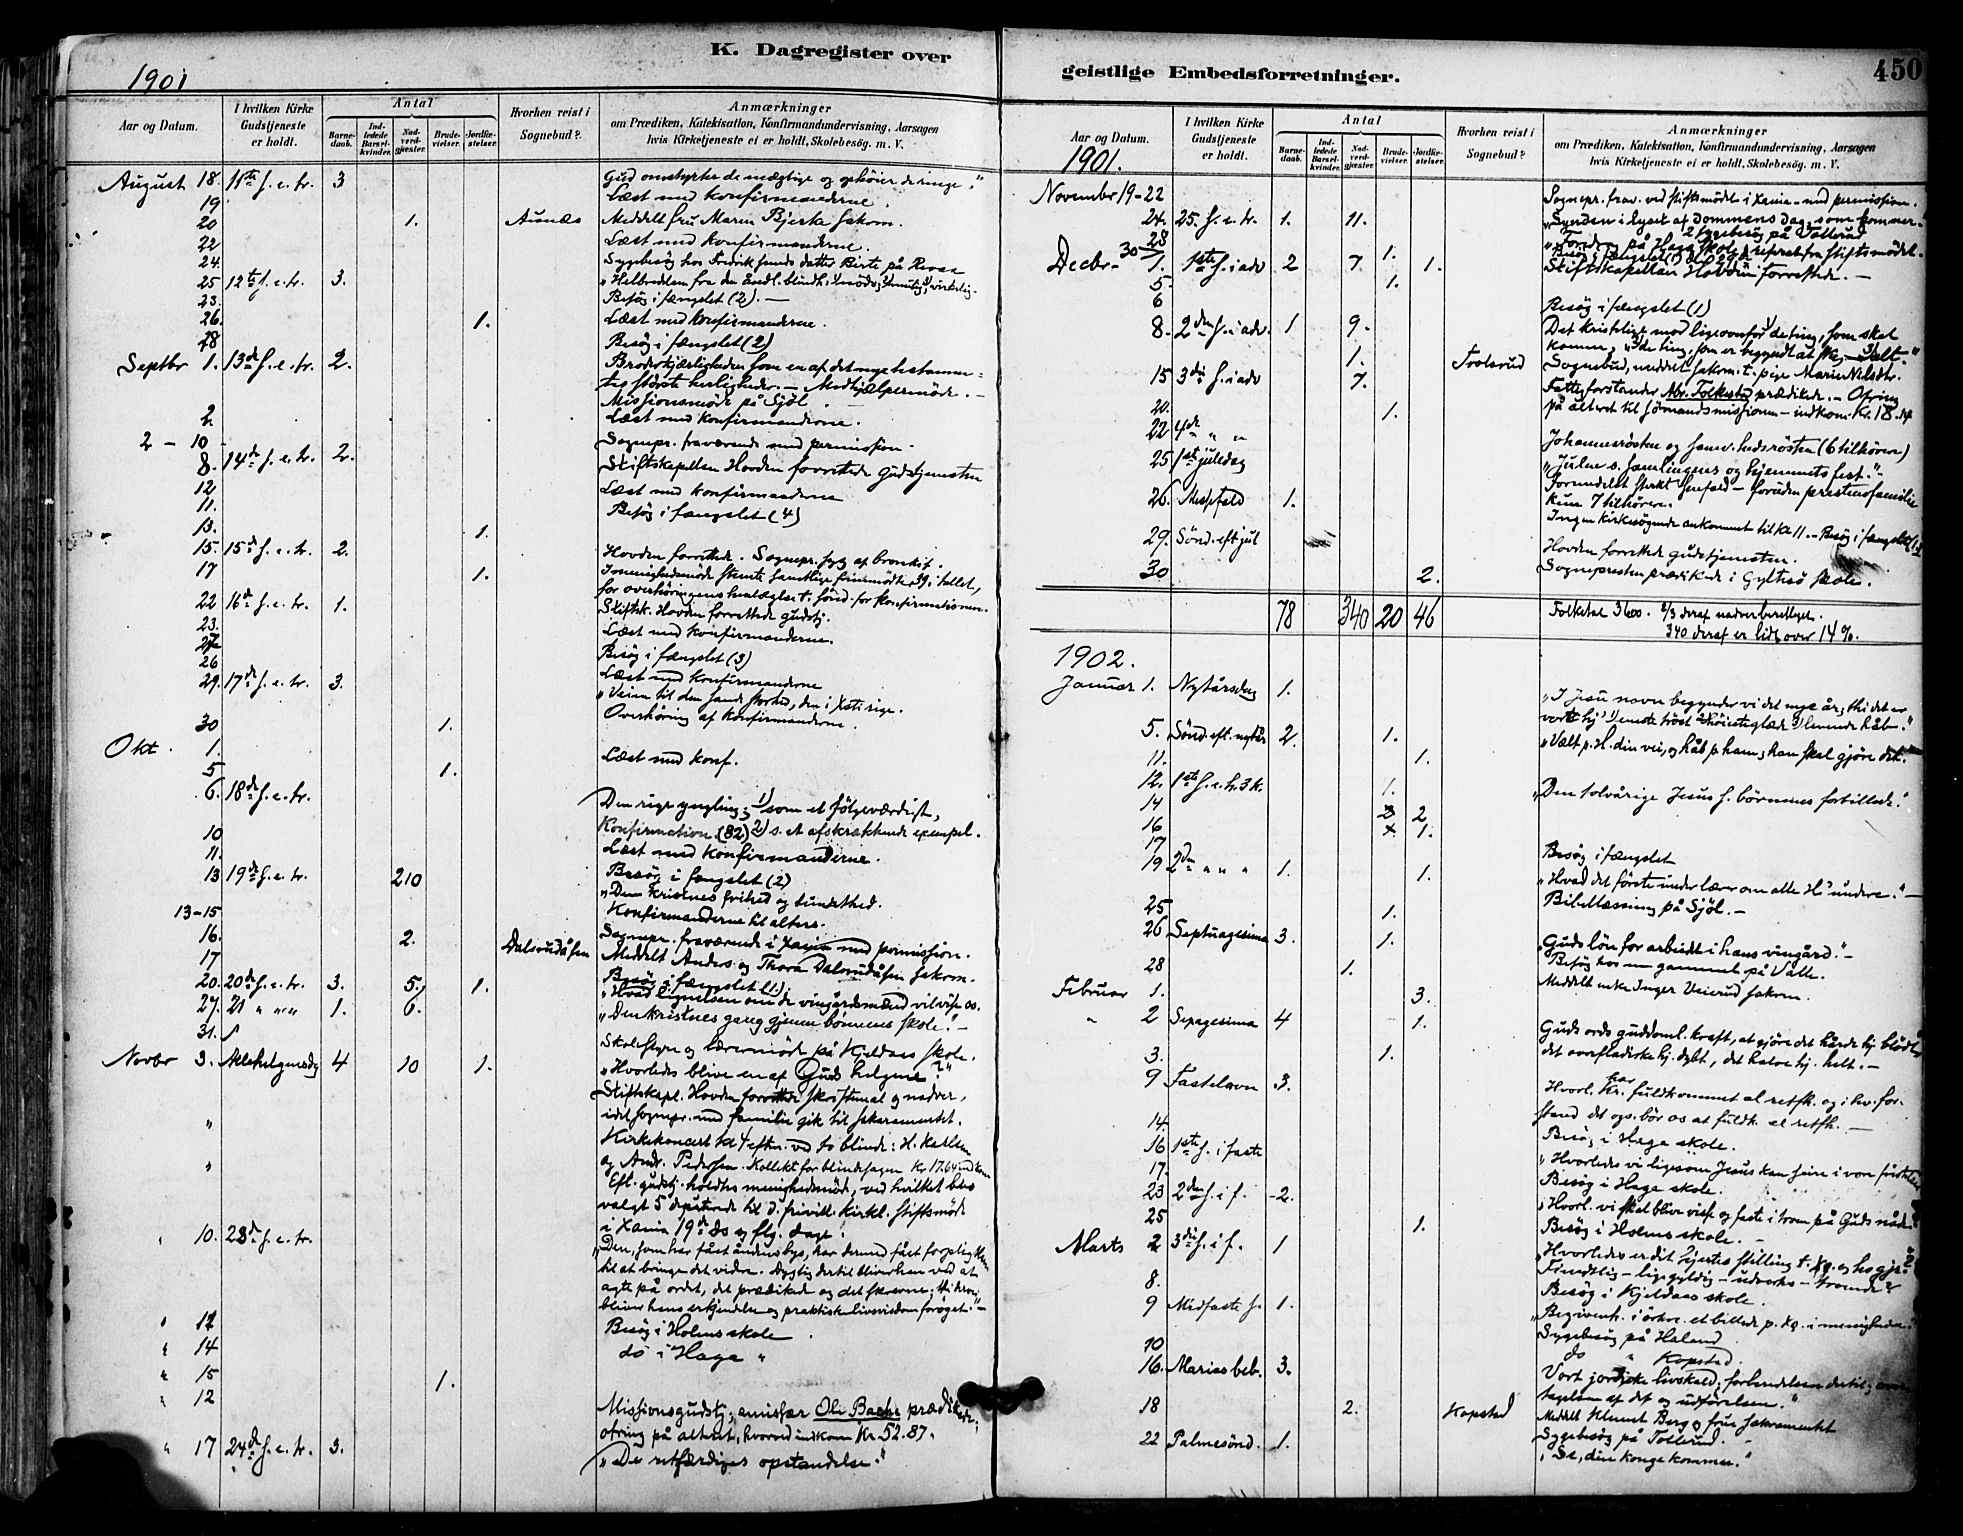 K. Dagregister over
1901
Aar og Datum.
I hvilken Kirke Gudstjeneste er holdt.
Antal
Barne-daab.
Ind-ledede Barsel-kvinder.
Nad-verd-gjæster.
Brude-vielser.
Jordfæ-stelser.
Hvorhen reist i Sognebud?
Anmærkninger
om Prædiken, Katekisation, Konfirmandundervisning, Aarsagen
hvis Kirketjeneste ei er holdt, Skolebesøg. m. V.
August 18. 11te s. e. tr. 3 Gud omstyrter de mægtige og ophöier de ringe."
19 Læst med konfirmanderne.
20 1. Aunæs Meddelt fru Maren Bjerke sakram.
22 Læst med konfirmanderne.
24. Sygebesög hos Fredrik datter Birte på Revaa
25 12te s. e. tr. 3. "Helbredelsen fra den åndl. blindh.
23. Besög i fængslet (2). —
26. 1. Læst med konfirmanderne.
28 Besög i fængslet (2)
Septbr 1. 13de s. e. tr. 2. Broderkjærligheden som en af det nye testamen-
tes störste herligheder. — Medhjælpermöde. —
Missionsmöde på Sjöl.
2 Læst med konfirmanderne.
2 — 10 Sognepr. fraværende med permission
8. 14de s. e. tr. 2. Stiftskapellan Hovden forrettede gudstjenesten
12 Læst med konfirmanderne
11. Besög i fængslet (4)
13. 1.
15. 15de s. e. tr. 2. Hovden forrettede. Sognepr. syg af bronkit.
17 1. I menighedsmöde stemte samtlige fremmödte, 29 i tallet,
for overhöringens henlæggelse t. sönd. for konfirmationen.
22 16de s. e. tr. 1. Stiftsk. Hovden forrettede gudstj.
23. Læst med konfirmanderne.
27 Besög i fængslet (3)
26 Læst med konfirmanderne
29. 17de s. e. tr. 3. "Veien til den sande storhed, den i Xsti rige.
30 1. Overhöring af konfirmanderne.
Okt. 1. Læst med konf.
5 1.
6. 18de s. e. tr. Den rige yngling; 1) som et fölgeværdigt,
Konfirmation (82) 2) s. et afskrækkende exempel.
10 Læst med konfirmanderne.
11. Besög i fængslet (2)
13 19de s. e. tr. 210 "Den kristnes frihed og bundethed.
Konfirmanderne til alters.
13-15 Sognepr. fraværende i Xania med permission.
16. 2. Dalsrudåsen Meddelt Anders og Thora Dalsrudåsen sakram.
17 Besög i fængslet (1).
20. 20de s. e. tr. 3. 5. 1. "Hvad lignelsen om de vingårdsmænd vil vise os.
27. 21 " " " 1. 6. "Den kristnes gang gjenem bönnens skole." —
31. Skolestyre og lærermöde på Kjeldaas skole.
Novbr 3. Allehelgensdg 4 10 1. "Hvorledes blive en af Guds helgene?"
Stiftskapl. Hovden forrettede skriftemål og nadver,
idet sognepr. med familie gik til sakramentet.
" Kirkekoncert kl 4 eftm. ved to blinde: H. Karlsen
og Andr. Pedersen. Kollekt for blindesagen Kr 17.64 indkom
" Eft. gudstj. holdtes menighedsmöde, ved hvilket blev
valgt 5 deputerede til d. frivill. kirkl. stiftsmöde
i Xania 19de ds og flg. dage.
" 10. 23de s. e. tr. "Den, som har fået åndens lys, har dermed fået forpligtelsen
til at bringe det videre. Dygtig dertil bliver han ved at
agte på ordet, det prædikede og det skrevne; thi herved
bliver hans erkjendelse og praktiske livsvisdom foröget." —
" 12 Besög i Holms skole.
" 14 do i Haga "
" 15 1.
" 12 Missionsgudstj; emissær Ole Bache prædikede;
ofring på alteret, hvorved indkom Kr 52.87.
" 17 24de s. e. tr. 3. "De retfærdiges opstandelse."
geistlige Embedsforretninger.
450
Aar og Datum.
1901.
I hvilken Kirke Gudstjeneste er holdt.
Antal
Barne-daab.
Ind-ledede Barsel-kvinder.
Nad-verd-gjæster.
Brude-vielser.
Jordfæ-stelser.
Hvorhen reist i Sognebud?
Anmærkninger
om Prædiken, Katekisation, Konfirmandundervisning, Aarsagen
hvis Kirketjeneste ei er holdt, Skolebesög. m. V.
November 19-22 Sognepr. frav. ved stiftsmödet i Xania med permission.
24. 25. s. e. tr. 1. 11. "Synden i lyset af dommens dag, som kommer."
28 2 Sygebesög på Tollerud
30 1. Foredrag på Haga skole, referat fra stiftsmödet.
Decbr 1. 1ste s. i adv 2 7 1. Stiftskapellan Hovden forrettede. —
5. 1.
6 Besög i fængslet (1)
8. 2den s. i adv. 1 9. Det kristelige mod ligeoverfor 1) de ting, som skal
komme, 2) de ting, som er begyndt at ske
1. Toolsrud Sognebud, meddelt sakram. t. pige Maren Nilsdtr.
15 3die s. i adv 7. Fattigforstander Abr. Folkestad prædikede. — Ofring
20. 1. på alteret til sömandsmissionen — indkom. Kr. 18.
22 4de " " " Johannesrösten og samvittighedsrösten (6 tilhörere)
25 1ste juledag "Julen s. samlingens og hjemmets fest."
26. Messefald 1. Formedelst sterkt snefald — foruden prestens familie
kun 7 tilhörere.
Ingen kirkesögende ankommet til kl 11. — Besög i fængslet
29. Sönd. eft jul Hovden forrettede gudstjenesten.
30 2. Sognepresten prædikede i Gyltesö skole.
78 340 20 46 Folketal 3600. 2/3 deraf nadverberettiget.
340 deraf er lidt over 14 %.
1902.
Januar 1. Nytårsdag 1. "I Jesu navn begynder vi det nye år; thi det er
vort hj. 1) eneste tröst 2) höieste glæde 3) levende håb."
5. Sönd. eft. nytår 2. 1. "Vælt p. H. din vei, og håb p. ham; han skal gjöre det."
11. 1.
12. 1ste s. e. h. 3 k. 1. "Den tolvårige Jesus s. börnenes forbillede."
14 2
16 1.
17 Besög i fængslet
19 2den " " " 1. 1. "Hvad det förste under lærer om alle H's undere." —
25 1. Bibellæsning på Sjöl. —
26 Septuagesima 3. 1. "Guds lön for arbeidet i hans vingård." —
28 1. Besög hos en gammel på Valle.
Februar 1. 3. Meddelt enke Inger Veierud sakram.
" 2 Sexagesima 4 1. Guds ords guddoml. kraft, at gjöre det hårde hj. blödt,
3. 1. det overfladiske hj. dybt, det halve hj. helt. —
9 Fastelavn 3. Hvorl. Kr. har fuldkommet al retfh. og i hv. for-
stand det ogs. bör os at fuldk. al retfh. —
14. Besög i Haga skole.
16 1ste s. i faste "Hvorledes vi ligesom Jesus kan seire i vore fristelser
17. Besög i Haga skole.
23 2den s. i f. 2. "Hvorl. vi skal blive visse og faste i troen på Guds nåde."
25 1. Besög i Holms skole. —
Marts 2 3die s. i f. 1 "Hvorledes er dit hjertes stilling t. Xs. og hs gjr.?
Fiendtlig — ligegyldig — udvortes — troende?
8. Besög i Kjeldaas skole.
9 Midfaste s. 1. "Begivenh. i örkn. et billede p. Xs. i menigheden."
Sygebesög på Haland
10 do " Kopstad.
16. Marias beb. 3. Vort jordiske livskald; forberedelsen dertil; over-
tagelsen af det og udförelsen."
18 2. Kopstad Meddelt Klemet Berg og frue sakramentet
Sygebesög på Tollerud.
22 Palmesönd. 1. "Se, din konge kommer."